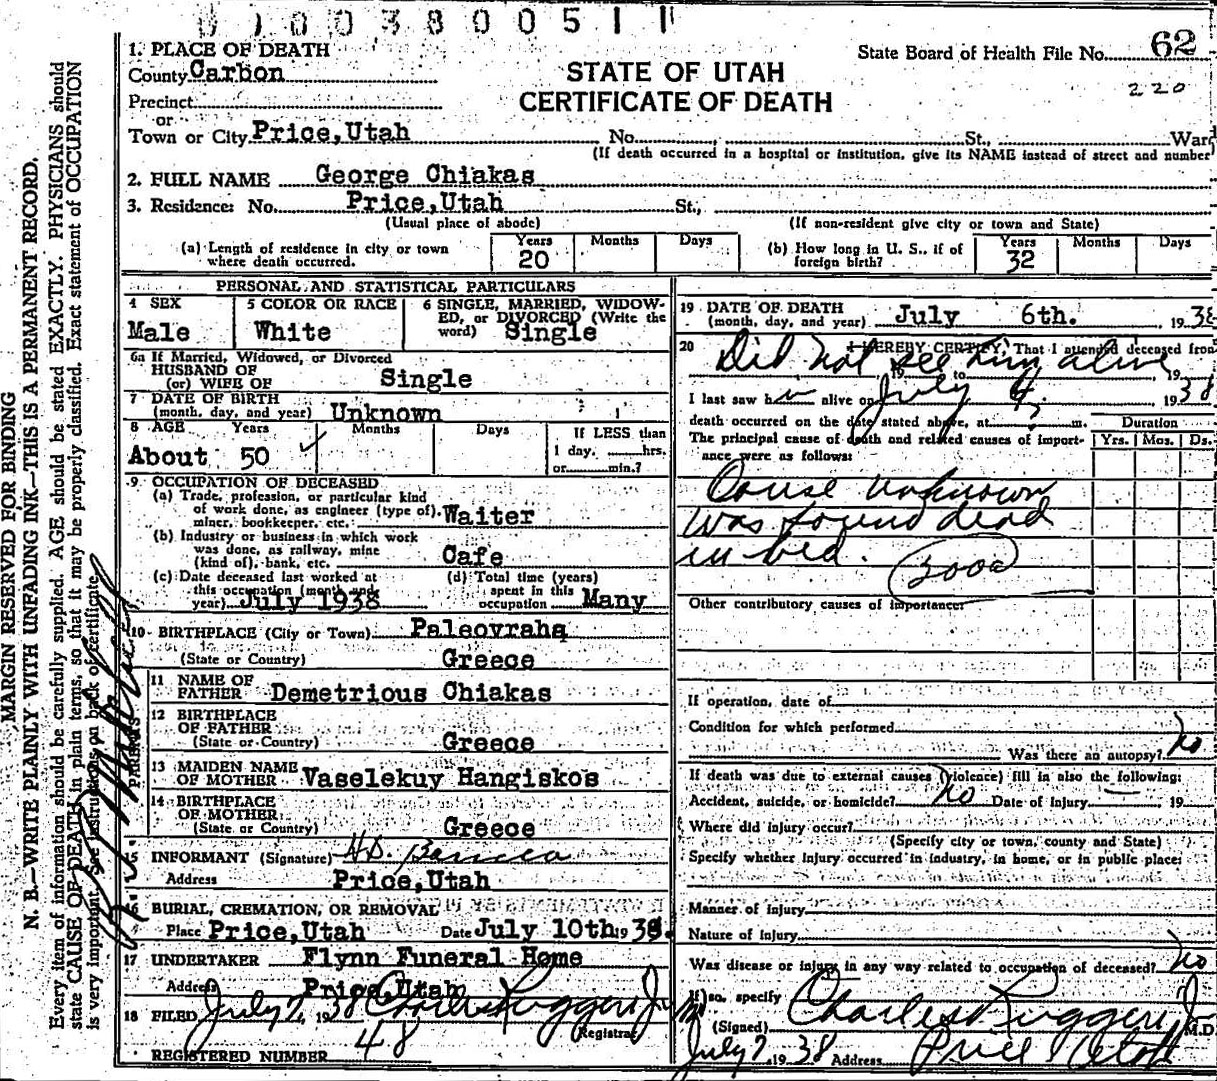 0100380051 1
1. PLACE OF DEATH
County Carbon
Precinct
or
Town or City Price,Utah No. St., Ward
(If death occurred in a hospital or institution, give its NAME instead of street and number)
State Board of Health File No. 62
220
STATE OF UTAH
CERTIFICATE OF DEATH
2. FULL NAME George Chiakas
3. Residence: No. Price,Utah St.,
(Usual place of abode) (If non-resident give city or town and State)
(a) Length of residence in city or town where death occurred. Years 20 Months Days
(b) How long in U. S., if of foreign birth? Years 32 Months Days
PERSONAL AND STATISTICAL PARTICULARS
4 SEX Male
5 COLOR OR RACE White
6 SINGLE, MARRIED, WIDOWED, or DIVORCED (Write the word) Single
6a If Married, Widowed, or Divorced
HUSBAND OF
(or) WIFE OF Single
7 DATE OF BIRTH
(month, day, and year) Unknown
8 AGE Years Months Days If LESS than
About 50 1 day, hrs.
or min.?
9 OCCUPATION OF DECEASED
(a) Trade, profession, or particular kind
of work done, as engineer (type of),
miner, bookkeeper, etc.: Waiter
(b) Industry or business in which work
was done, as railway, mine
(kind of), bank, etc. Cafe
(c) Date deceased last worked at
this occupation (month and
year) July 1938
(d) Total time (years)
spent in this
occupation Many
10 BIRTHPLACE (City or Town) Paleovraha
(State or Country) Greece
PARENTS
11 NAME OF
FATHER Demetrious Chiakas
12 BIRTHPLACE
OF FATHER
(State or Country) Greece
13 MAIDEN NAME
OF MOTHER Vaselekuy Hangiskos
14 BIRTHPLACE
OF MOTHER
(State or Country) Greece
15 INFORMANT (Signature) H.D.
Address Price,Utah
16 BURIAL, CREMATION, OR REMOVAL
Place Price,Utah Date July 10th 1938.
17 UNDERTAKER Flynn Funeral Home
Address Price,Utah
18 FILED July 7, 1938 Charles Ruggeri Jr
Registrar
REGISTERED NUMBER 48
19 DATE OF DEATH
(month, day, and year) July 6th. 1938
20 I HEREBY CERTIFY, That I attended deceased from
Did not see him alive
19 to 19
I last saw him alive on July 4, 1938
death occurred on the date stated above, at m.
The principal cause of death and related causes of importance were as follows:
Duration
Yrs. Mos. Ds.
Cause unknown
was found dead
in bed.
200a
Other contributory causes of importance:
If operation, date of
Condition for which performed
Was there an autopsy? No
If death was due to external causes (violence) fill in also the following:
Accident, suicide, or homicide? No Date of Injury 19
Where did injury occur?
(Specify city or town, county and State)
Specify whether injury occurred in industry, in home, or in public place:
Manner of injury
Nature of Injury
Was disease or injury in any way related to occupation of deceased? No
If so, specify
(Signed) Charles Ruggeri Jr M.D.
July 7 1938 Address Price Utah
MARGIN RESERVED FOR BINDING
N. B.—WRITE PLAINLY WITH UNFADING INK—THIS IS A PERMANENT RECORD.
Every item of information should be carefully supplied. AGE should be stated EXACTLY. PHYSICIANS should
state CAUSE OF DEATH in plain terms, so that it may be properly classified. Exact statement of OCCUPATION
is very important. See instructions on back of certificate.